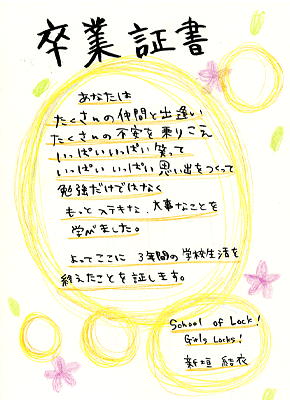 卒業証書
あなたは
たくさんの仲間と出逢い
たくさんの不安を乗りこえ
いっぱいいっぱい笑って
いっぱいいっぱい思い出をつくって
勉強だけではなく
もっとステキな、大事なことを
学びました。
よってここに 3年間の学校生活を
終えたことを証します。
School of Lock!
Girls Locks!
新垣 結衣